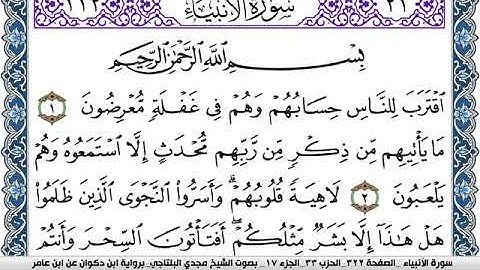 سُورَةُ الأَنبِيَاءِ
بِسْمِ اللَّهِ الرَّحْمَٰنِ الرَّحِيمِ
ٱقْتَرَبَ لِلنَّاسِ حِسَابُهُمْ وَهُمْ فِي غَفْلَةٍ مُّعْرِضُونَ ١
مَا يَأْتِيهِم مِّن ذِكْرٍ مِّن رَّبِّهِم مُّحْدَثٍ إِلَّا ٱسْتَمَعُوهُ وَهُمْ
يَلْعَبُونَ ٢ لَاهِيَةً قُلُوبُهُمْ وَأَسَرُّوا۟ ٱلنَّجْوَى ٱلَّذِينَ ظَلَمُوا۟
هَلْ هَٰذَا إِلَّا بَشَرٌ مِّثْلُكُمْ أَفَتَأْتُونَ ٱلسِّحْرَ وَأَنتُمْ
سورة الأنبياء _الصفحة ٣٢٢_ الحزب ٣٣_ الجزء ١٧ _ بصوت الشيخ مجدي البلتاجي_ برواية ابن ذكوان عن ابن عامر